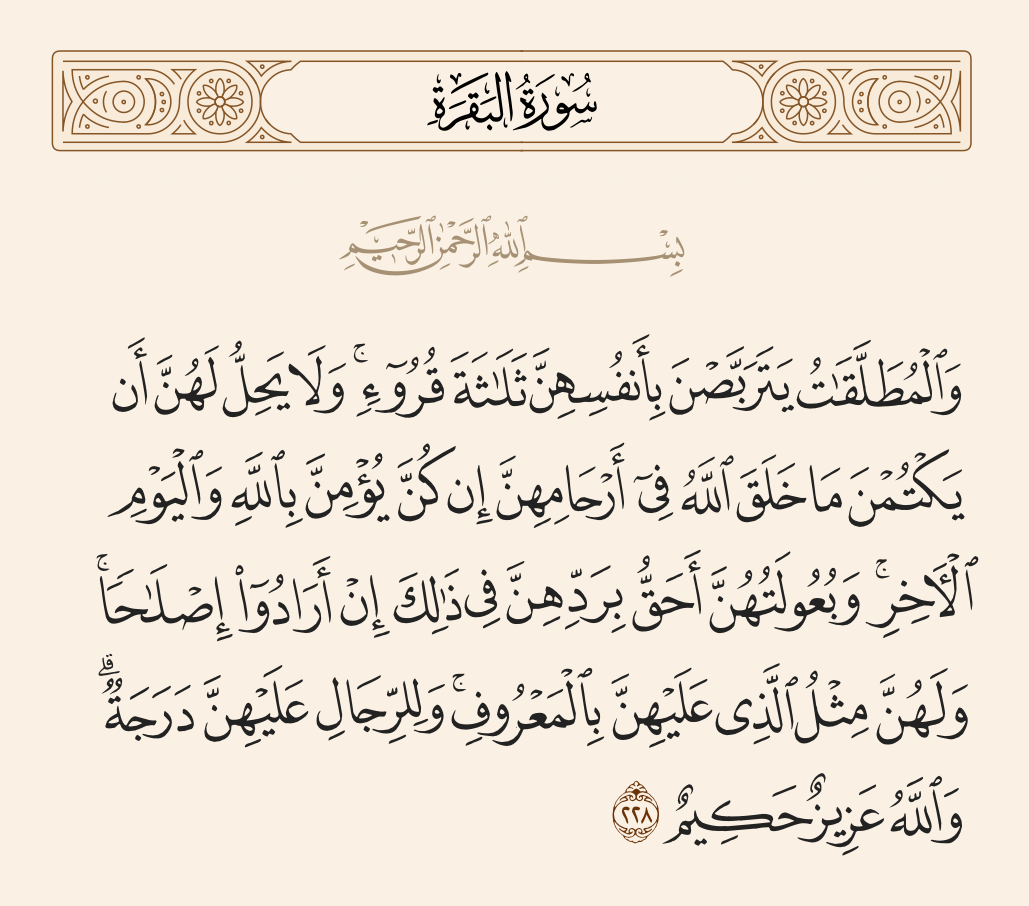 سُورَةُ البَقَرَةِ
بِسْمِ ٱللَّهِ ٱلرَّحْمَٰنِ ٱلرَّحِيمِ
وَٱلْمُطَلَّقَٰتُ يَتَرَبَّصْنَ بِأَنفُسِهِنَّ ثَلَٰثَةَ قُرُوٓءٍۚ وَلَا يَحِلُّ لَهُنَّ أَن
يَكْتُمْنَ مَا خَلَقَ ٱللَّهُ فِىٓ أَرْحَامِهِنَّ إِن كُنَّ يُؤْمِنَّ بِٱللَّهِ وَٱلْيَوْمِ
ٱلْـَٔاخِرِۚ وَبُعُولَتُهُنَّ أَحَقُّ بِرَدِّهِنَّ فِى ذَٰلِكَ إِنْ أَرَادُوٓا۟ إِصْلَٰحًاۚ
وَلَهُنَّ مِثْلُ ٱلَّذِى عَلَيْهِنَّ بِٱلْمَعْرُوفِۚ وَلِلرِّجَالِ عَلَيْهِنَّ دَرَجَةٌۗ
وَٱللَّهُ عَزِيزٌ حَكِيمٌ ٢٢٨